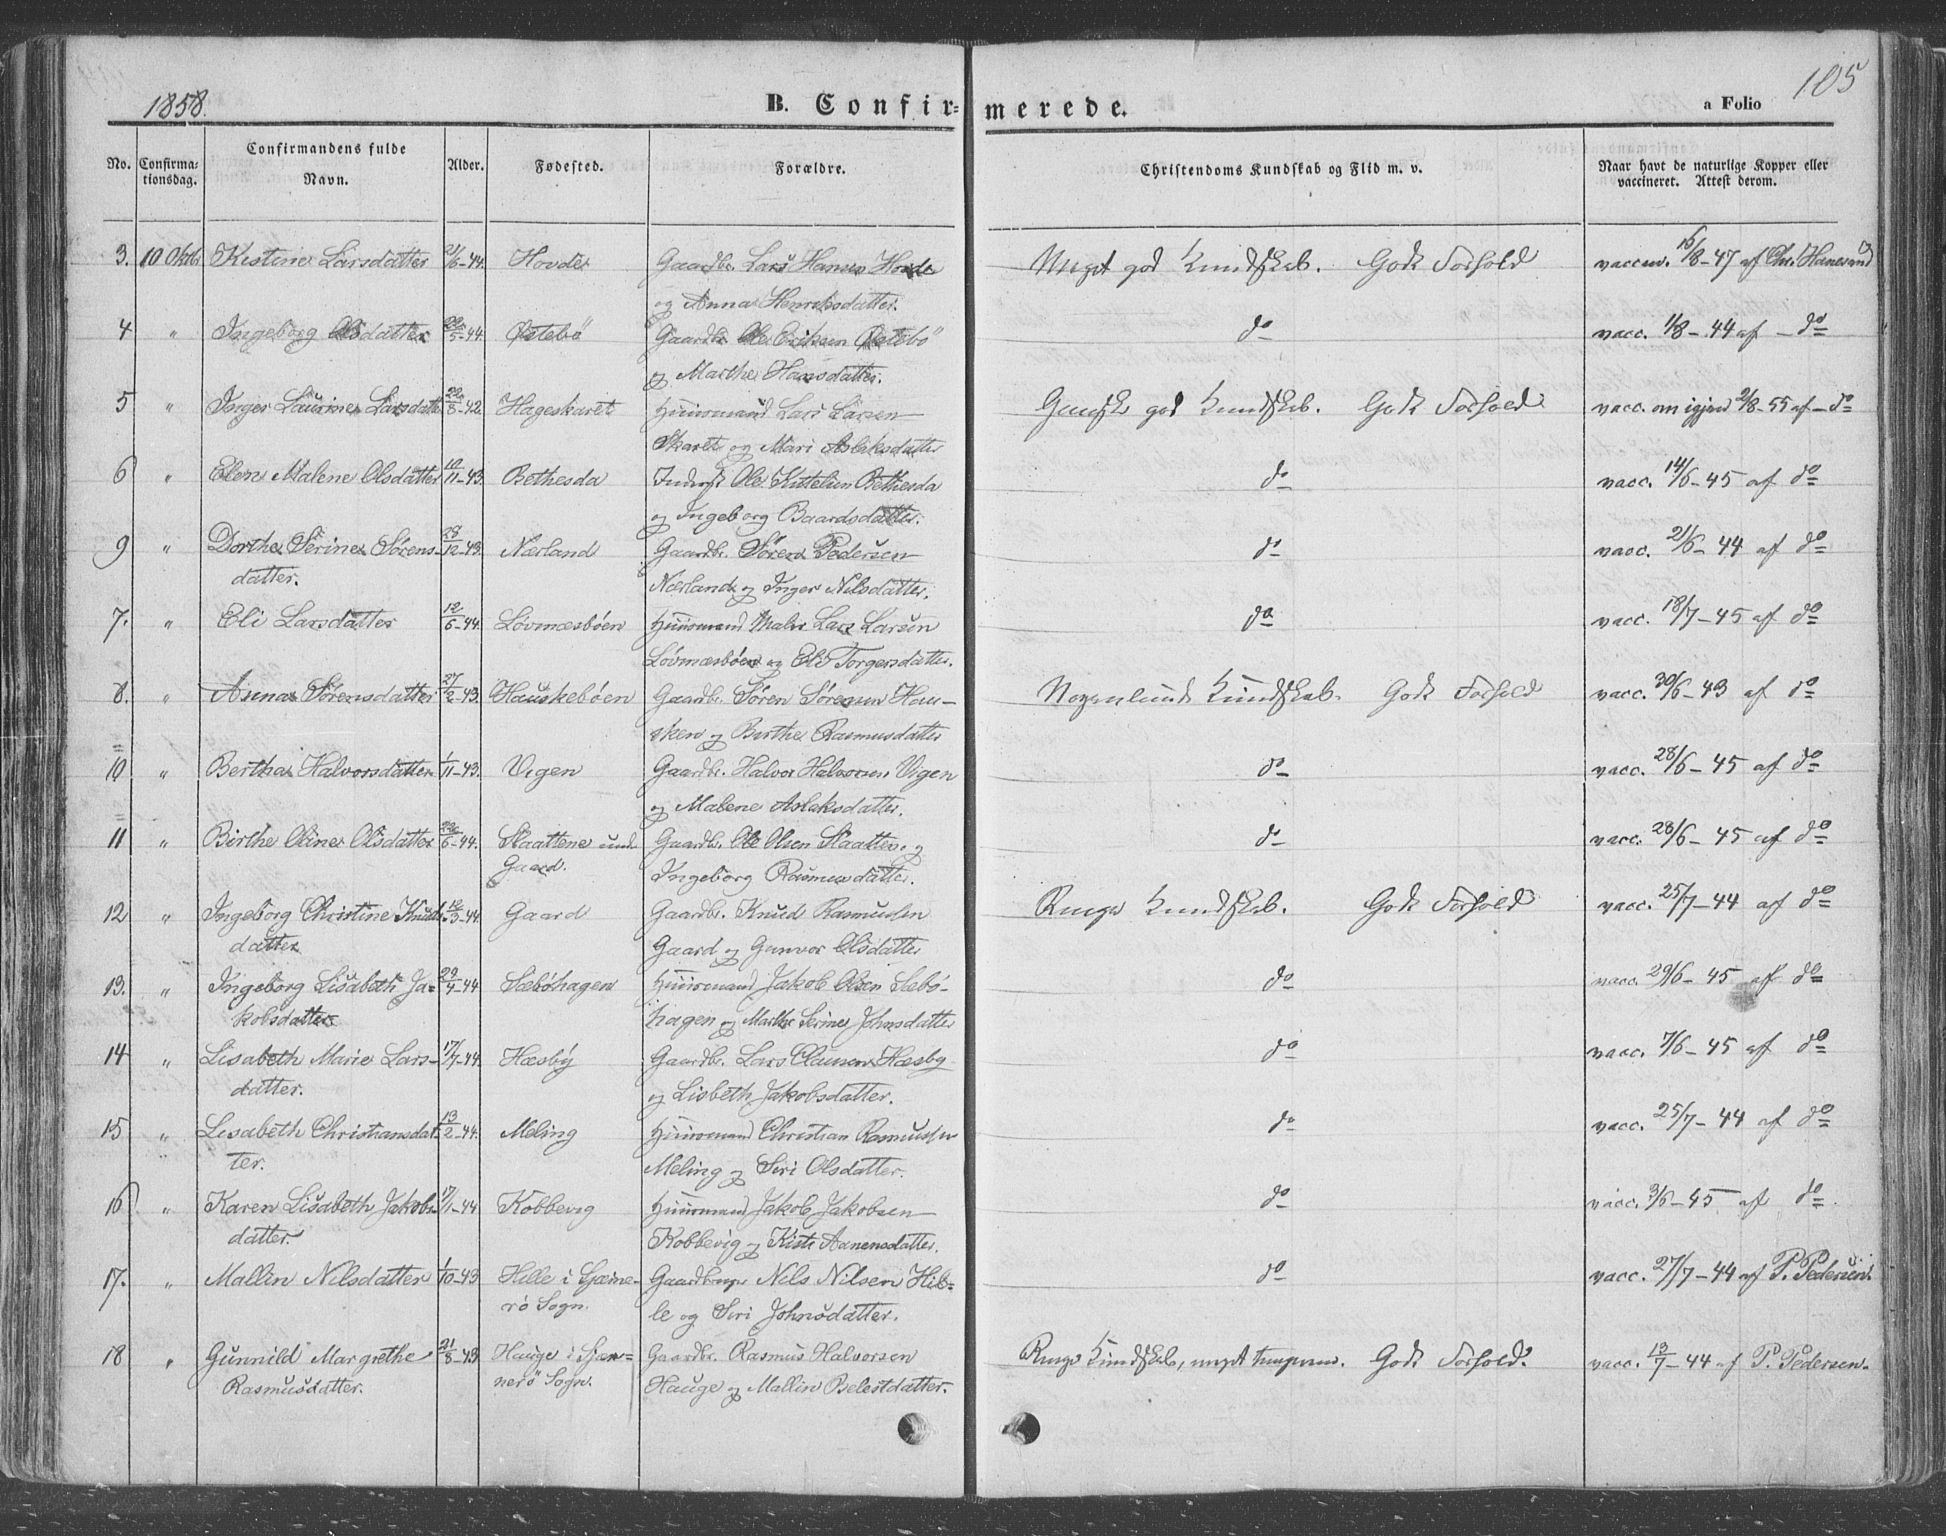 1858.
B. Confirmerede.
a Folio 105
No.
Confirmationsdag.
Confirmandens fulde Navn.
Alder.
Fødested.
Forældre.
Christendoms Kundskab og Flid m. v.
Naar havt de naturlige Kopper eller vaccineret. Attest derom.
3. 10 Oktbr. Kistine Larsdatter 21/6-44. Hovde Gaardbr. Lars Hansen Hovde Meget god Kundskab. Godt Forhold vaccin. 16/8-47 af Chr. Hanesand
og Anna Henriksdatter.
4 " Ingeborg Olsdatter 22/5-44. Østebö Gaardbr. Ole Eriksen Østebö do vacc. 1/8-44 af - do
og Marthe Hansdatter.
5 " Inger Laurine Larsdatter 22/8-42 Hageskaret Huusmand Lars Larsen Ganske god Kundskab. Godt Forhold vacc. om igjen 2/8-55 af - do
Skaret og Mari Aslaksdatter
6 " Elen Malene Olsdatter 10/11-43. Bethesda Inderst Ole Kittelsen Bethesda do vacc. 14/6-45 af do
og Ingeborg Baardsdatter.
9 " Dorthe Serine Sørens- 25/12-43. Nærland Gaardbr. Sören Pedersen do vacc. 21/6-44 af do
datter. Nærland og Inger Nilsdatter.
7. " Eli Larsdatter 12/6-44. Løvmæsbøen Huusmand Maler Lars Larsen do vacc. 18/7-45 af do
Løvmæsbøen og Eli Torgersdatter.
8. " Anna Sørensdatter 27/2-43. Hauskebøen Gaardbr. Søren Sørensen Hau- Nogenlunde Kundskab. Godt Forhold vacc. 30/6-43 af do
sken og Birthe Rasmusdatter
10 " Bertha Halvorsdatter 1/11-43. Vigen Gaardbr. Halvor Halvorsen Vigen do vacc. 28/6-45 af do
og Malene Aslaksdatter.
11 " Birthe Oline Olsdatter 22/6-44. Slaattene und. Gaardbr. Ole Olsen Slaatten og do vacc. 28/6-45 af do
Gaard. Ingeborg Rasmusdatter.
12 " Ingeborg Christine Knuds- 12/3-44 Gaard Gaardbr. Knud Rasmussen Ringe Kundskab. Godt Forhold vacc. 25/7-44 af do
datter Gaard og Gunvor Olsdatter
13. " Ingeborg Lisabeth Ja- 29/4-44 Sæbøhagen Huusmand Jakob Olsen Sæbø- do vacc. 29/6-45 af do
kobsdatter hagen og Marthe Serine Johnsdatter
14 " Lisabeth Marie Lars- 17/7-44. Hæsby Gaardbr. Lars Clausen Hæsby do vacc. 7/6-45 af do
datter. og Lisbeth Jakobsdatter.
15 " Lisabeth Christiansdat- 13/2-44. Meling Huusmand Christian Rasmussen do vacc. 25/7-44 af do
ter. Meling og Siri Olsdatter.
16 " Karen Lisabeth Jakobs- 17/1-44 Kobbevig Huusmand Jakob Jakobsen do vacc. 3/6-45 af do
datter. Kobbevig og Kisti Aanensdatter.
17. " Mallin Nilsdatter 1/10-43 Hille i Sjærne- Gaardbruger Nils Nilsen Hil- do vacc. 27/7-44 af P. Pedersen.
rö Sogn. le og Siri Johnsdatter.
18 " Gunnild Margrethe 21/8-43 Hauge i Sjær- Gaardbr. Rasmus Halvorsen Ringe Kundskab, meget Godt Forhold. vacc. 13/7-44 af P. Pedersen.
Rasmusdatter. nerö Sogn. Hauge og Mallin Belestdatter.